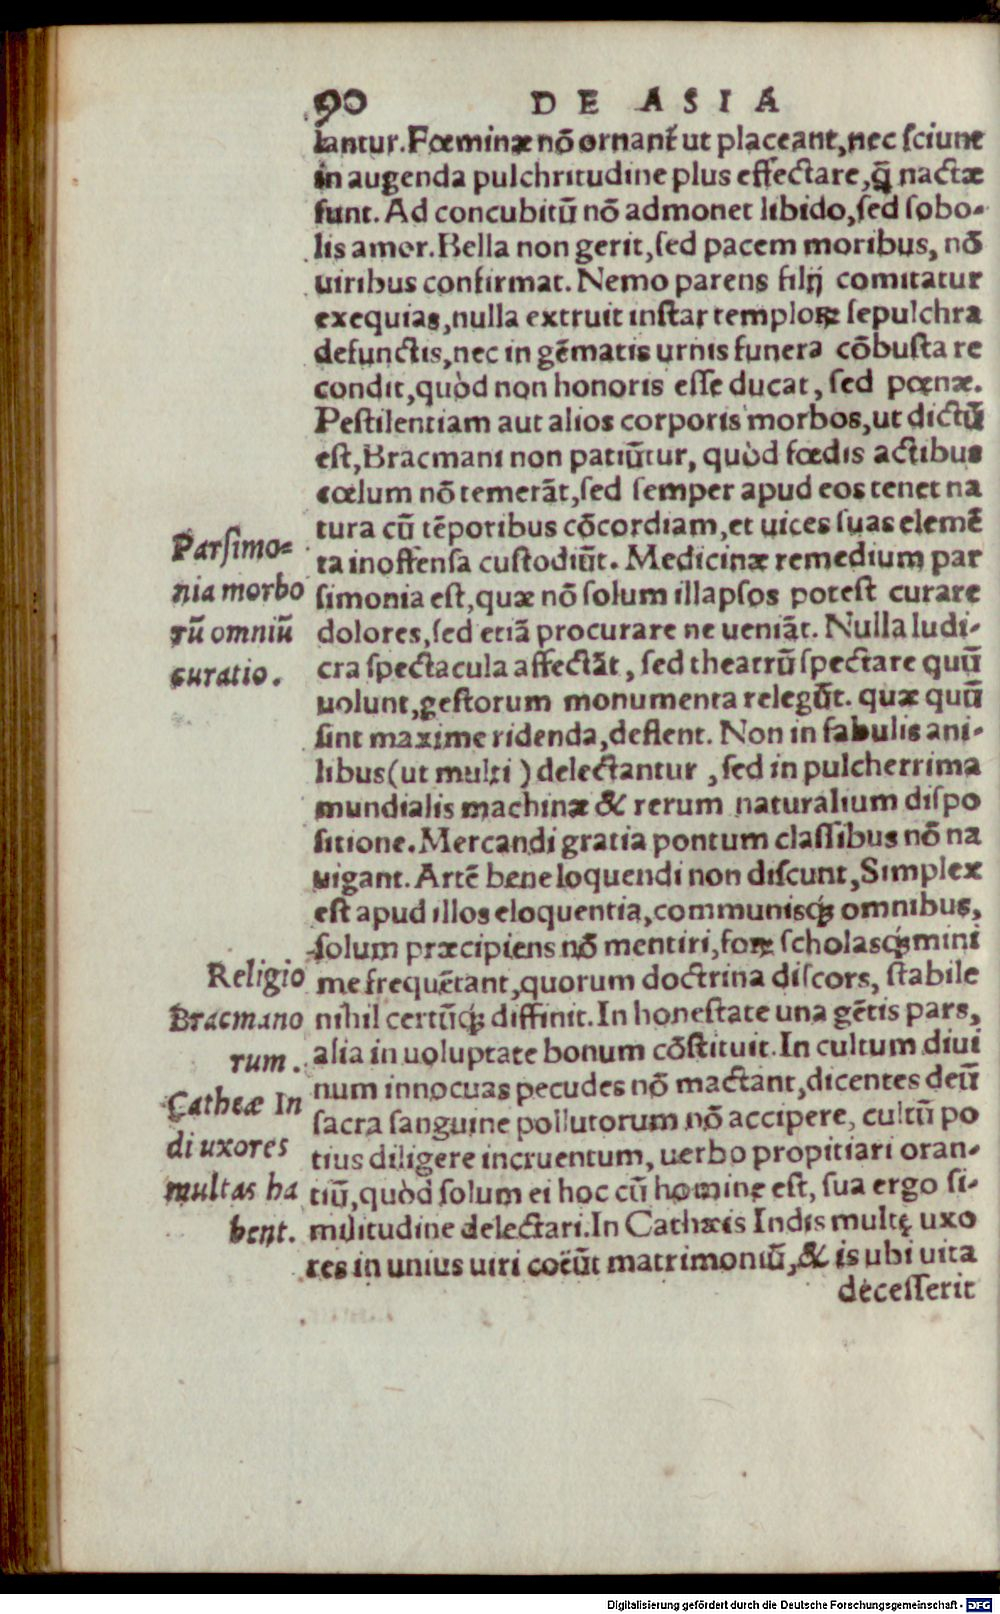 90 DE ASIA
tantur. Fœminæ nõ ornant᷑ ut placeant, nec ſciunt
in augenda pulchritudine plus effectare, q̃ nactæ
ſunt. Ad concubitũ nõ admonet libido, ſed ſobo-
lis amor. Bella non gerit, ſed pacem moribus, nõ
uiribus confirmat. Nemo parens filij comitatur
exequias, nulla extruit inſtar temploꝝ ſepulchra
defunctis, nec in gẽmatis urnis funera cõbuſta re
condit, quòd non honoris eſſe ducat, ſed pœnæ.
Peſtilentiam aut alios corporis morbos, ut dictũ
eſt, Bracmani non patiũtur, quòd fœdis actibus
cœlum nõ temerãt, ſed ſemper apud eos tenet na
tura cũ tẽporibus cõcordiam, et uices ſuas elemẽ
ta inoffenſa cuſtodiũt. Medicinæ remedium par
ſimonia eſt, quæ nõ ſolum illapſos poteſt curare
dolores, ſed etiã procurare ne ueniãt. Nulla ludi-
cra ſpectacula affectãt, ſed theatrũ ſpectare quũ
uolunt, geſtorum monumenta relegũt. quæ quũ
ſint maxime ridenda, deflent. Non in fabulis ani-
libus (ut multi) delectantur, ſed in pulcherrima
mundialis machinæ & rerum naturalium diſpo
ſitione. Mercandi gratia pontum claſſibus nõ na
uigant. Artẽ bene loquendi non diſcunt, Simplex
eſt apud illos eloquentia, communisq́; omnibus,
ſolum præcipiens nõ mentiri, foꝝ ſcholasq́; mini
me frequẽtant, quorum doctrina diſcors, ſtabile
nihil certũq́; diffinit. In honeſtate una gẽtis pars,
alia in uoluptate bonum cõſtituit. In cultum diui
num innocuas pecudes nõ mactant, dicentes deũ
ſacra ſanguine pollutorum nõ accipere, cultũ po
tius diligere incruentum, uerbo propitiari oran-
tiũ, quòd ſolum ei hoc cũ homine eſt, ſua ergo ſi-
militudine delectari. In Cathæis Indis multę uxo
res in unius uiri coëũt matrimoniũ, & is ubi uita
deceſſerit
Parſimo=
nia morbo
rũ omniũ
curatio.
Religio
Bracmano
rum.
Catheæ In
di uxores
multas ha
bent.
Digitalisierung gefördert durch die Deutsche Forschungsgemeinschaft - DFG